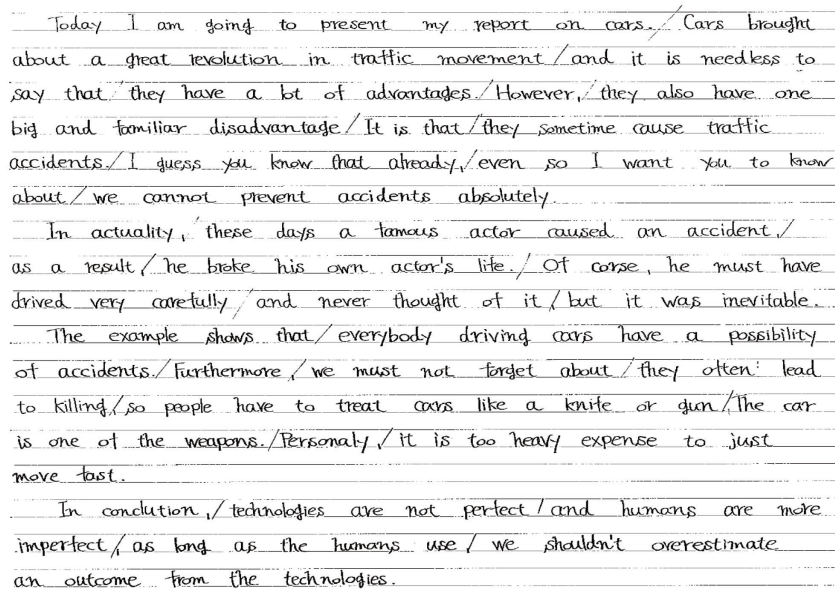 Today I am going to present my report on cars. / Cars brought
about a great revolution in traffic movement / and it is needless to
say that / they have a lot of advantages. / However, / they also have one
big and familiar disadvantage / It is that / they sometime cause traffic
accidents. / I guess you know that already, / even so I want you to know
about / we cannot prevent accidents absolutely.
In actuality, / these days a famous actor caused an accident, /
as a result, / he broke his own actor's life. / Of corse, he must have
drived very carefully / and never thought of it, / but it was inevitable.
The example shows that / everybody driving cars have a possibility
of accidents. / Furthermore, / we must not forget about / they often lead
to killing, / so people have to treat cars like a knife or gun. / The car
is one of the weapons. / Personaly, / it is too heavy expense to just
move fast.
In conclution, / technologies are not perfect / and humans are more
imperfect, / as long as the humans use / we shouldn't overestimate
an outcome from the technologies.